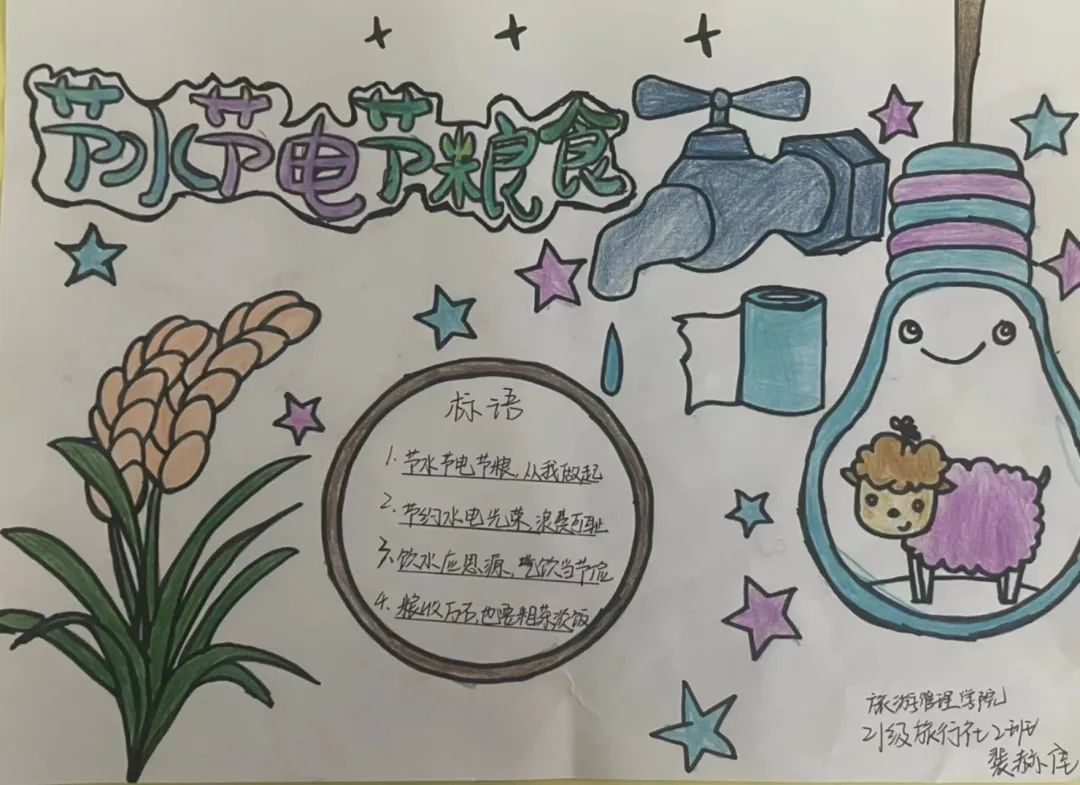 节水节电节粮食
标语
1. 节水节电节粮,从我做起
2. 节约水电光荣,浪费可耻
3. 饮水应思源,吃饭当节俭
4. 粮收万石,也要粗茶淡饭
旅游管理学院
21级旅行社2班